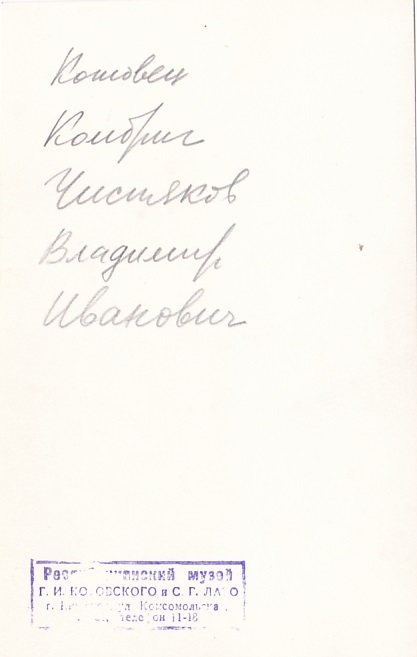 Котовец
Комбриг
Чистяков
Владимир
Иванович
музей
Г. И. КОТОВСКОГО и С. Г. ЛАЗО
г. ул Комсомольска
телефон 11-18